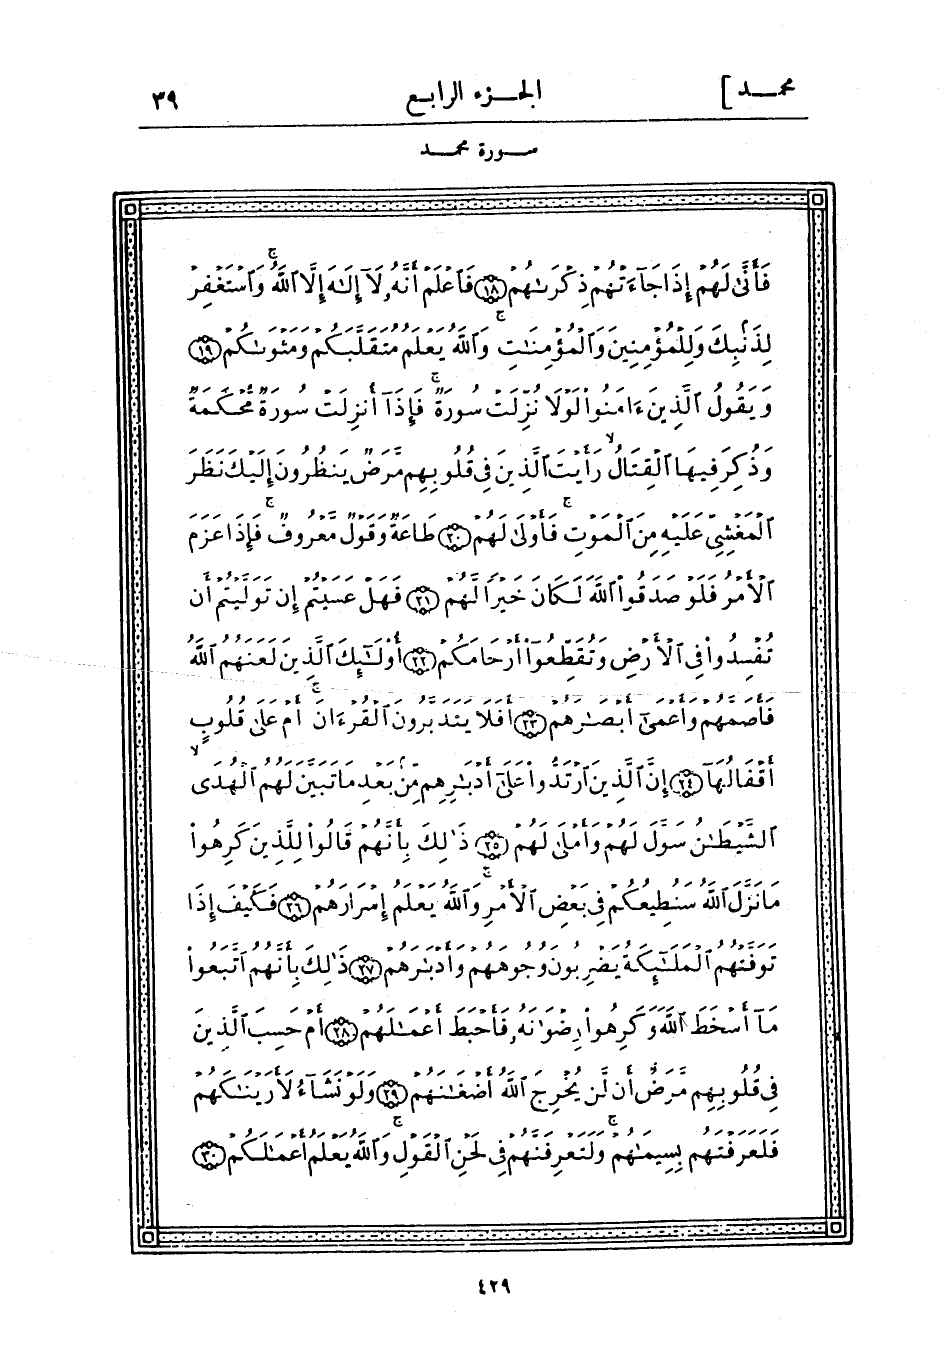 محمد ]
الجزء الرابع
٣٩
سورة محمد
فَأَنَّىٰ لَهُمْ إِذَا جَآءَتْهُمْ ذِكْرَىٰهُمْ ١٨ فَٱعْلَمْ أَنَّهُۥ لَآ إِلَٰهَ إِلَّا ٱللَّهُ وَٱسْتَغْفِرْ
لِذَنۢبِكَ وَلِلْمُؤْمِنِينَ وَٱلْمُؤْمِنَٰتِ ۚ وَٱللَّهُ يَعْلَمُ مُتَقَلَّبَكُمْ وَمَثْوَىٰكُمْ ١٩
وَيَقُولُ ٱلَّذِينَ ءَامَنُوا۟ لَوْلَا نُزِّلَتْ سُورَةٌ ۚ فَإِذَآ أُنزِلَتْ سُورَةٌ مُّحْكَمَةٌ
وَذُكِرَ فِيهَا ٱلْقِتَالُ ۙ رَأَيْتَ ٱلَّذِينَ فِى قُلُوبِهِم مَّرَضٌ يَنظُرُونَ إِلَيْكَ نَظَرَ
ٱلْمَغْشِىِّ عَلَيْهِ مِنَ ٱلْمَوْتِ ۚ فَأَوْلَىٰ لَهُمْ ٢٠ طَاعَةٌ وَقَوْلٌ مَّعْرُوفٌ ۚ فَإِذَا عَزَمَ
ٱلْأَمْرُ فَلَوْ صَدَقُوا۟ ٱللَّهَ لَكَانَ خَيْرًا لَّهُمْ ٢١ فَهَلْ عَسَيْتُمْ إِن تَوَلَّيْتُمْ أَن
تُفْسِدُوا۟ فِى ٱلْأَرْضِ وَتُقَطِّعُوٓا۟ أَرْحَامَكُمْ ٢٢ أُو۟لَٰٓئِكَ ٱلَّذِينَ لَعَنَهُمُ ٱللَّهُ
فَأَصَمَّهُمْ وَأَعْمَىٰٓ أَبْصَٰرَهُمْ ٢٣ أَفَلَا يَتَدَبَّرُونَ ٱلْقُرْءَانَ ۚ أَمْ عَلَىٰ قُلُوبٍ
أَقْفَالُهَآ ٢٤ إِنَّ ٱلَّذِينَ ٱرْتَدُّوا۟ عَلَىٰٓ أَدْبَٰرِهِم مِّنۢ بَعْدِ مَا تَبَيَّنَ لَهُمُ ٱلْهُدَى ۙ
ٱلشَّيْطَٰنُ سَوَّلَ لَهُمْ وَأَمْلَىٰ لَهُمْ ٢٥ ذَٰلِكَ بِأَنَّهُمْ قَالُوا۟ لِلَّذِينَ كَرِهُوا۟
مَا نَزَّلَ ٱللَّهُ سَنُطِيعُكُمْ فِى بَعْضِ ٱلْأَمْرِ ۚ وَٱللَّهُ يَعْلَمُ إِسْرَارَهُمْ ٢٦ فَكَيْفَ إِذَا
تَوَفَّتْهُمُ ٱلْمَلَٰٓئِكَةُ يَضْرِبُونَ وُجُوهَهُمْ وَأَدْبَٰرَهُمْ ٢٧ ذَٰلِكَ بِأَنَّهُمُ ٱتَّبَعُوا۟
مَآ أَسْخَطَ ٱللَّهَ وَكَرِهُوا۟ رِضْوَٰنَهُۥ فَأَحْبَطَ أَعْمَٰلَهُمْ ٢٨ أَمْ حَسِبَ ٱلَّذِينَ
فِى قُلُوبِهِم مَّرَضٌ أَن لَّن يُخْرِجَ ٱللَّهُ أَضْغَٰنَهُمْ ٢٩ وَلَوْ نَشَآءُ لَأَرَيْنَٰكَهُمْ
فَلَعَرَفْتَهُم بِسِيمَٰهُمْ ۚ وَلَتَعْرِفَنَّهُمْ فِى لَحْنِ ٱلْقَوْلِ ۚ وَٱللَّهُ يَعْلَمُ أَعْمَٰلَكُمْ ٣٠
٤٢٩